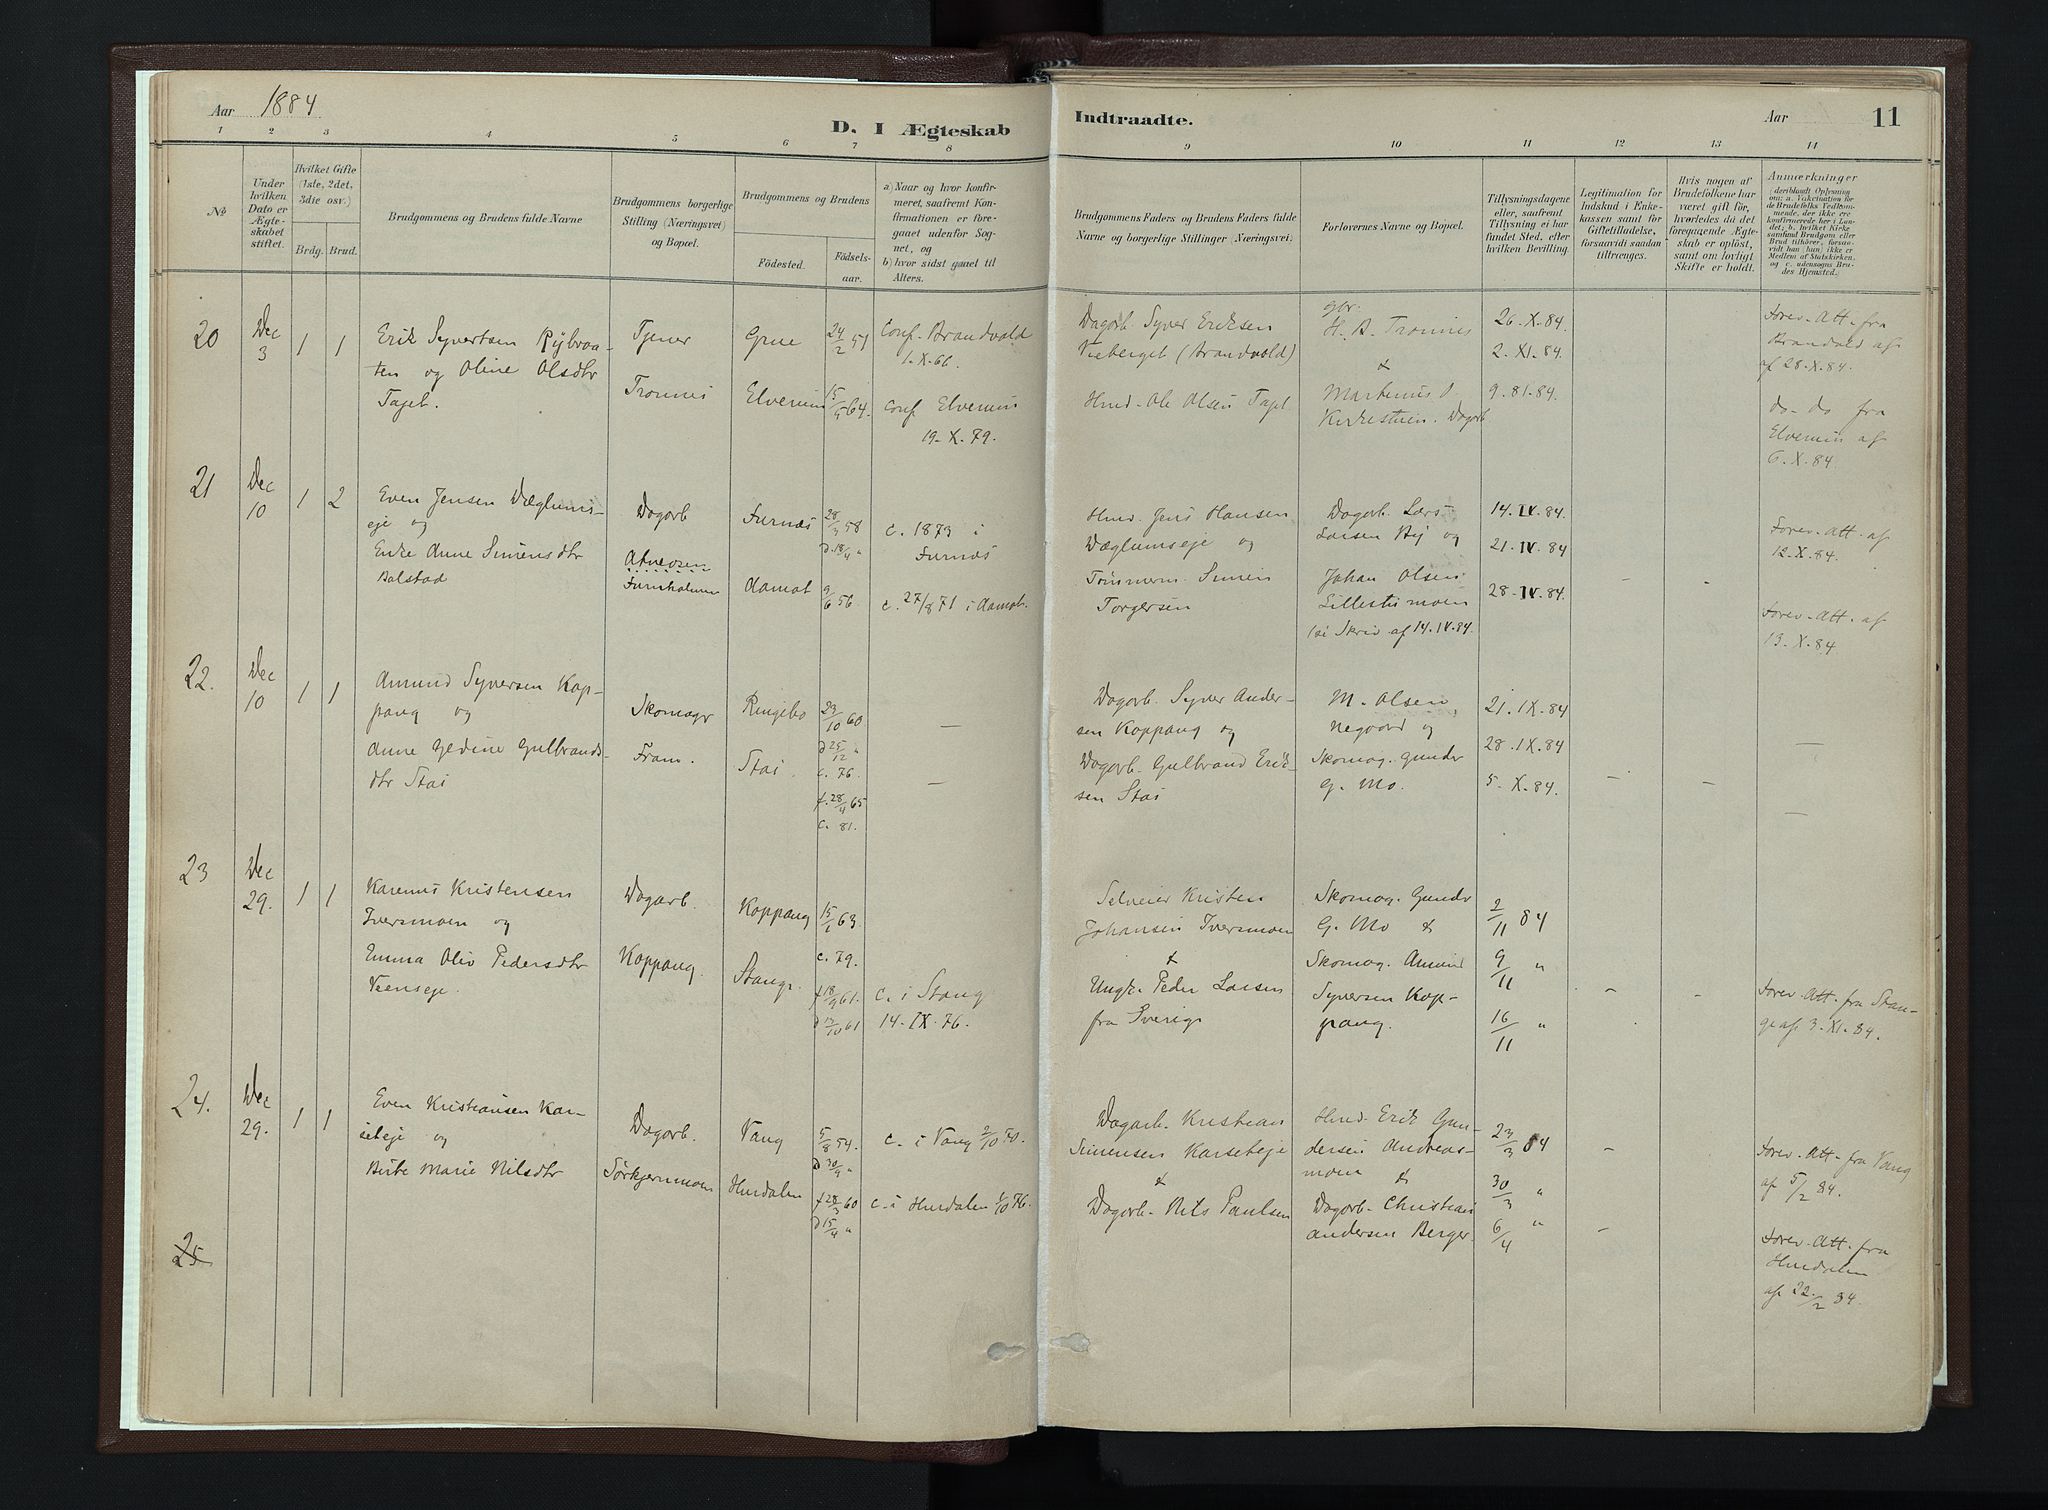 Aar 1884
D. I Ægteskab
Indtraadte.
Aar
11
1 2 3 4 5 6 7 8 9 10 11 12 13 14
No
Under hvilken Dato er Ægteskabet stiftet.
Hvilket Gifte (1ste, 2det, 3die osv.)
Brdg. Brud.
Brudgommens og Brudens fulde Navne
Brudgommens borgerlige Stilling (Næringsvei) og Bopæl.
Brudgommens og Brudens
Fødested.
Fødselsaar.
a) Naar og hvor konfirmeret, saafremt Konfirmationen er foregaaet udenfor Sognet, og
b) hvor sidst gaaet til Alters.
Brudgommens Faders og Brudens Faders fulde Navne og borgerlige Stillinger (Næringsvei).
Forlovernes Navne og Bopæl.
Tillysningsdagene eller, saafremt Tillysning ei har fundet Sted, efter hvilken Bevilling.
Legitimation for Indskud i Enkekassen samt for Giftetilladelse, forsaavidt saadan tiltrænges.
Hvis nogen af Brudefolkene har været gift før, hvorledes da det foregaaende Ægteskab er opløst, samt om lovligt Skifte er holdt.
Anmærkninger
20
Dec 3
1 1
Erik Syvertsen Rybraa-
ten og Oline Olsdtr
Taget.
Tjener
Trønnes
Grue
Elverum
24/2 51
15/5 64.
Conf. Brandvold
1. X. 66.
Conf. Elverum
19. X. 79.
Dagarb. Syver Eriksen
Vieberget (Brandvold)
Husd. Ole Olsen Taget
Gbr.
H. B. Trønnes
&
Martinus O.
Kirkestuen. Dagarb
26. X. 84.
2. XI. 84.
9. 81. 84.
Forev. Att. fra
Brandvold af
af 28. X. 84.
do. do fra
Elverum af
6. X. 84.
21
Dec 10
1 2
Even Jensen Dæglums-
eje og
Enke Anne Simensdtr
Bolstad
Dagarb
Atneosen
Furuholmen
Furnæs
Aamot
28/3 58
d. 18/4 "
9/6 56.
c. 1873 i
Furnæs
c. 27/8 71 i Aamot.
Husd. Jens Hansen
Dæglumseje og
Tømmerm. Simen
Torgersen
Dagarb. Lars
Larsen By og
Johan Olsen
Lillestumoen
(se Skriv. af 14. IX. 84.
14. IX. 84.
21. IX. 84
28. IX. 84.
Forev. Att. af
12. X. 84.
Forev. Att. af
13. X. 84.
22.
Dec 10
1 1
Amund Syversen Kop-
pang og
Anne Geline Gulbrands-
dtr Stai
Skomagr
Fram.
Ringebo
Stai.
23/10 60
d 25/12 "
c. 76.
f. 28/4 65
c. 81.
Dagarb. Syver Ander-
sen Koppang og
Dagarb. Gulbrand Erik-
sen Stai
M. Olsen,
Negaard og
Skomag. Gunder
G. Mo.
21. IX. 84
28. IX. 84
5. X. 84.
23
Dec 29.
1 1
Karenus Kristensen
Iversmoen og
Emma Oliv Pedersdtr
Veenseje.
Dagarb.
Koppang.
Koppang
Stange.
15/1 63.
c. 79.
f 18/9 61.
d 13/10 61
c. i Stang
14. IX. 76.
Selveier Kristen
Johansen Iversmoen
&
Ungk. Peder Larsen
fra Sverige
Skomag. Gundr
G. Mo &
Skomag. Amund
Syversen Kop-
pang.
2/11 84
9/11 "
16/11 "
Forev. Att. fra Stan-
ge af 3. XI. 84.
24.
Dec 29.
1 1
Even Kristiansen Kar-
seteje og
Birte Marie Nilsdtr
Dagarb.
Sørkjernmoen
Vang
Hurdalen
5/8 54.
d 30/9 "
f 28/3 60
d 15/4 "
c. i Vang 2/10 70.
c. i Hurdalen 1/10 76.
Dagarb. Kristian
Simensen Karseteje
&
Dagarb. Nils Paulsen
Husd. Erik Gun-
dersen Andreas-
moen &
Dagarb. Christian
Andersen Berger.
23/3 84
30/3 "
6/4 "
Forev. Att. fra Vang
af 5/2 84.
Forev. Att. fra
Hurdalen
af 22/2 84.
25